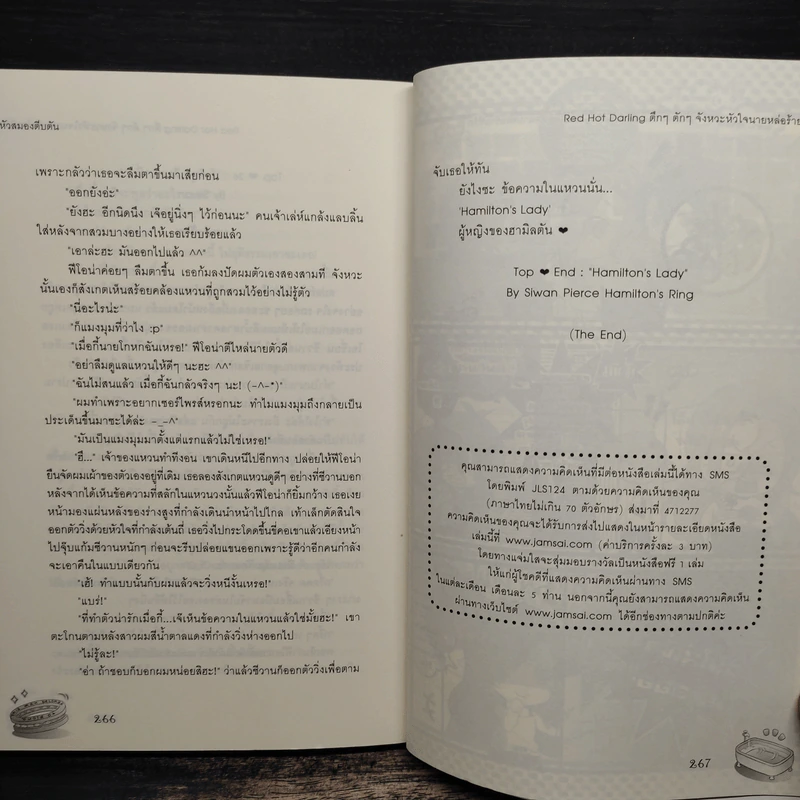 หัวสมองตีบตัน
เพราะกลัวว่าเธอจะลืมตาขึ้นมาเสียก่อน
"ออกยังอ่ะ"
"ยังฮะ อีกนิดนึง เจ๊อยู่นิ่งๆ ไว้ก่อนนะ" คนเจ้าเล่ห์แกล้งแลบลิ้น
ใส่หลังจากสวมบางอย่างให้เธอเรียบร้อยแล้ว
"เอาล่ะฮะ มันออกไปแล้ว ^^"
ฟีโอน่าค่อยๆ ลืมตาขึ้น เธอก้มลงปัดผมตัวเองสองสามที จังหวะ
นั้นเองก็สังเกตเห็นสร้อยคล้องแหวนที่ถูกสวมไว้อย่างไม่รู้ตัว
"นี่อะไรน่ะ"
"ก็แมงมุมที่ว่าไง :p"
"เมื่อกี้นายโกหกฉันเหรอ!" ฟีโอน่าตีไหล่นายตัวดี
"อย่าลืมดูแลแหวนให้ดีๆ นะฮะ ^^"
"ฉันไม่สนแล้ว เมื่อกี้ฉันกลัวจริงๆ นะ! (-^-*)"
"ผมทำเพราะอยากเซอร์ไพรส์หรอกนะ ทำไมแมงมุมถึงกลายเป็น
ประเด็นขึ้นมาซะได้ล่ะ -_-^"
"มันเป็นแมงมุมมาตั้งแต่แรกแล้วไม่ใช่เหรอ!"
"ฮึ..." เจ้าของแหวนทำทีงอน เขาเดินหนีไปอีกทาง ปล่อยให้ฟีโอน่า
ยืนจัดผมเผ้าของตัวเองอยู่ที่เดิม เธอลองสังเกตแหวนดูดีๆ อย่างที่ซีวานบอก
หลังจากได้เห็นข้อความที่สลักในแหวนวงนั้นแล้วฟีโอน่าก็ยิ้มกว้าง เธอเงย
หน้ามองแผ่นหลังของร่างสูงที่กำลังเดินนำหน้าไปไกล เท้าเล็กตัดสินใจ
ออกตัววิ่งด้วยหัวใจที่กำลังเต้นถี่ เธอวิ่งไปกระโดดขึ้นขี่คอเขาแล้วเอียงหน้า
ไปจุ๊บแก้มซีวานหนักๆ ก่อนจะรีบปล่อยแขนออกเพราะรู้ดีว่าอีกคนกำลัง
จะเอาคืนในแบบเดียวกัน
"เฮ้! ทำแบบนั้นกับผมแล้วจะวิ่งหนีงั้นเหรอ!"
"แบร่!"
"ที่ทำตัวน่ารักเมื่อกี้...เจ๊เห็นข้อความในแหวนแล้วใช่มั้ยฮะ!" เขา
ตะโกนตามหลังสาวผมสีน้ำตาลแดงที่กำลังวิ่งห่างออกไป
"ไม่รู้ละ!"
"อ่า ถ้าชอบก็บอกผมหน่อยสิฮะ!" ว่าแล้วซีวานก็ออกตัววิ่งเพื่อตาม
266
Red Hot Darling ตึกๆ ตักๆ จังหวะหัวใจนายหล่อร้าย
จับเธอให้ทัน
ยังไงซะ ข้อความในแหวนนั่น...
'Hamilton's Lady'
ผู้หญิงของฮามิลตัน ❤
Top ❤ End : "Hamilton's Lady"
By Siwan Pierce Hamilton's Ring
(The End)
คุณสามารถแสดงความคิดเห็นที่มีต่อหนังสือเล่มนี้ได้ทาง SMS
โดยพิมพ์ JLS124 ตามด้วยความคิดเห็นของคุณ
(ภาษาไทยไม่เกิน 70 ตัวอักษร) ส่งมาที่ 4712277
ความคิดเห็นของคุณจะได้รับการส่งไปแสดงในหน้ารายละเอียดหนังสือ
เล่มนี้ที่ www.jamsai.com (ค่าบริการครั้งละ 3 บาท)
โดยทางแจ่มใสจะสุ่มมอบรางวัลเป็นหนังสือฟรี 1 เล่ม
ให้แก่ผู้โชคดีที่แสดงความคิดเห็นผ่านทาง SMS
ในแต่ละเดือน เดือนละ 5 ท่าน นอกจากนี้คุณยังสามารถแสดงความคิดเห็น
ผ่านทางเว็บไซต์ www.jamsai.com ได้อีกช่องทางตามปกติค่ะ
267